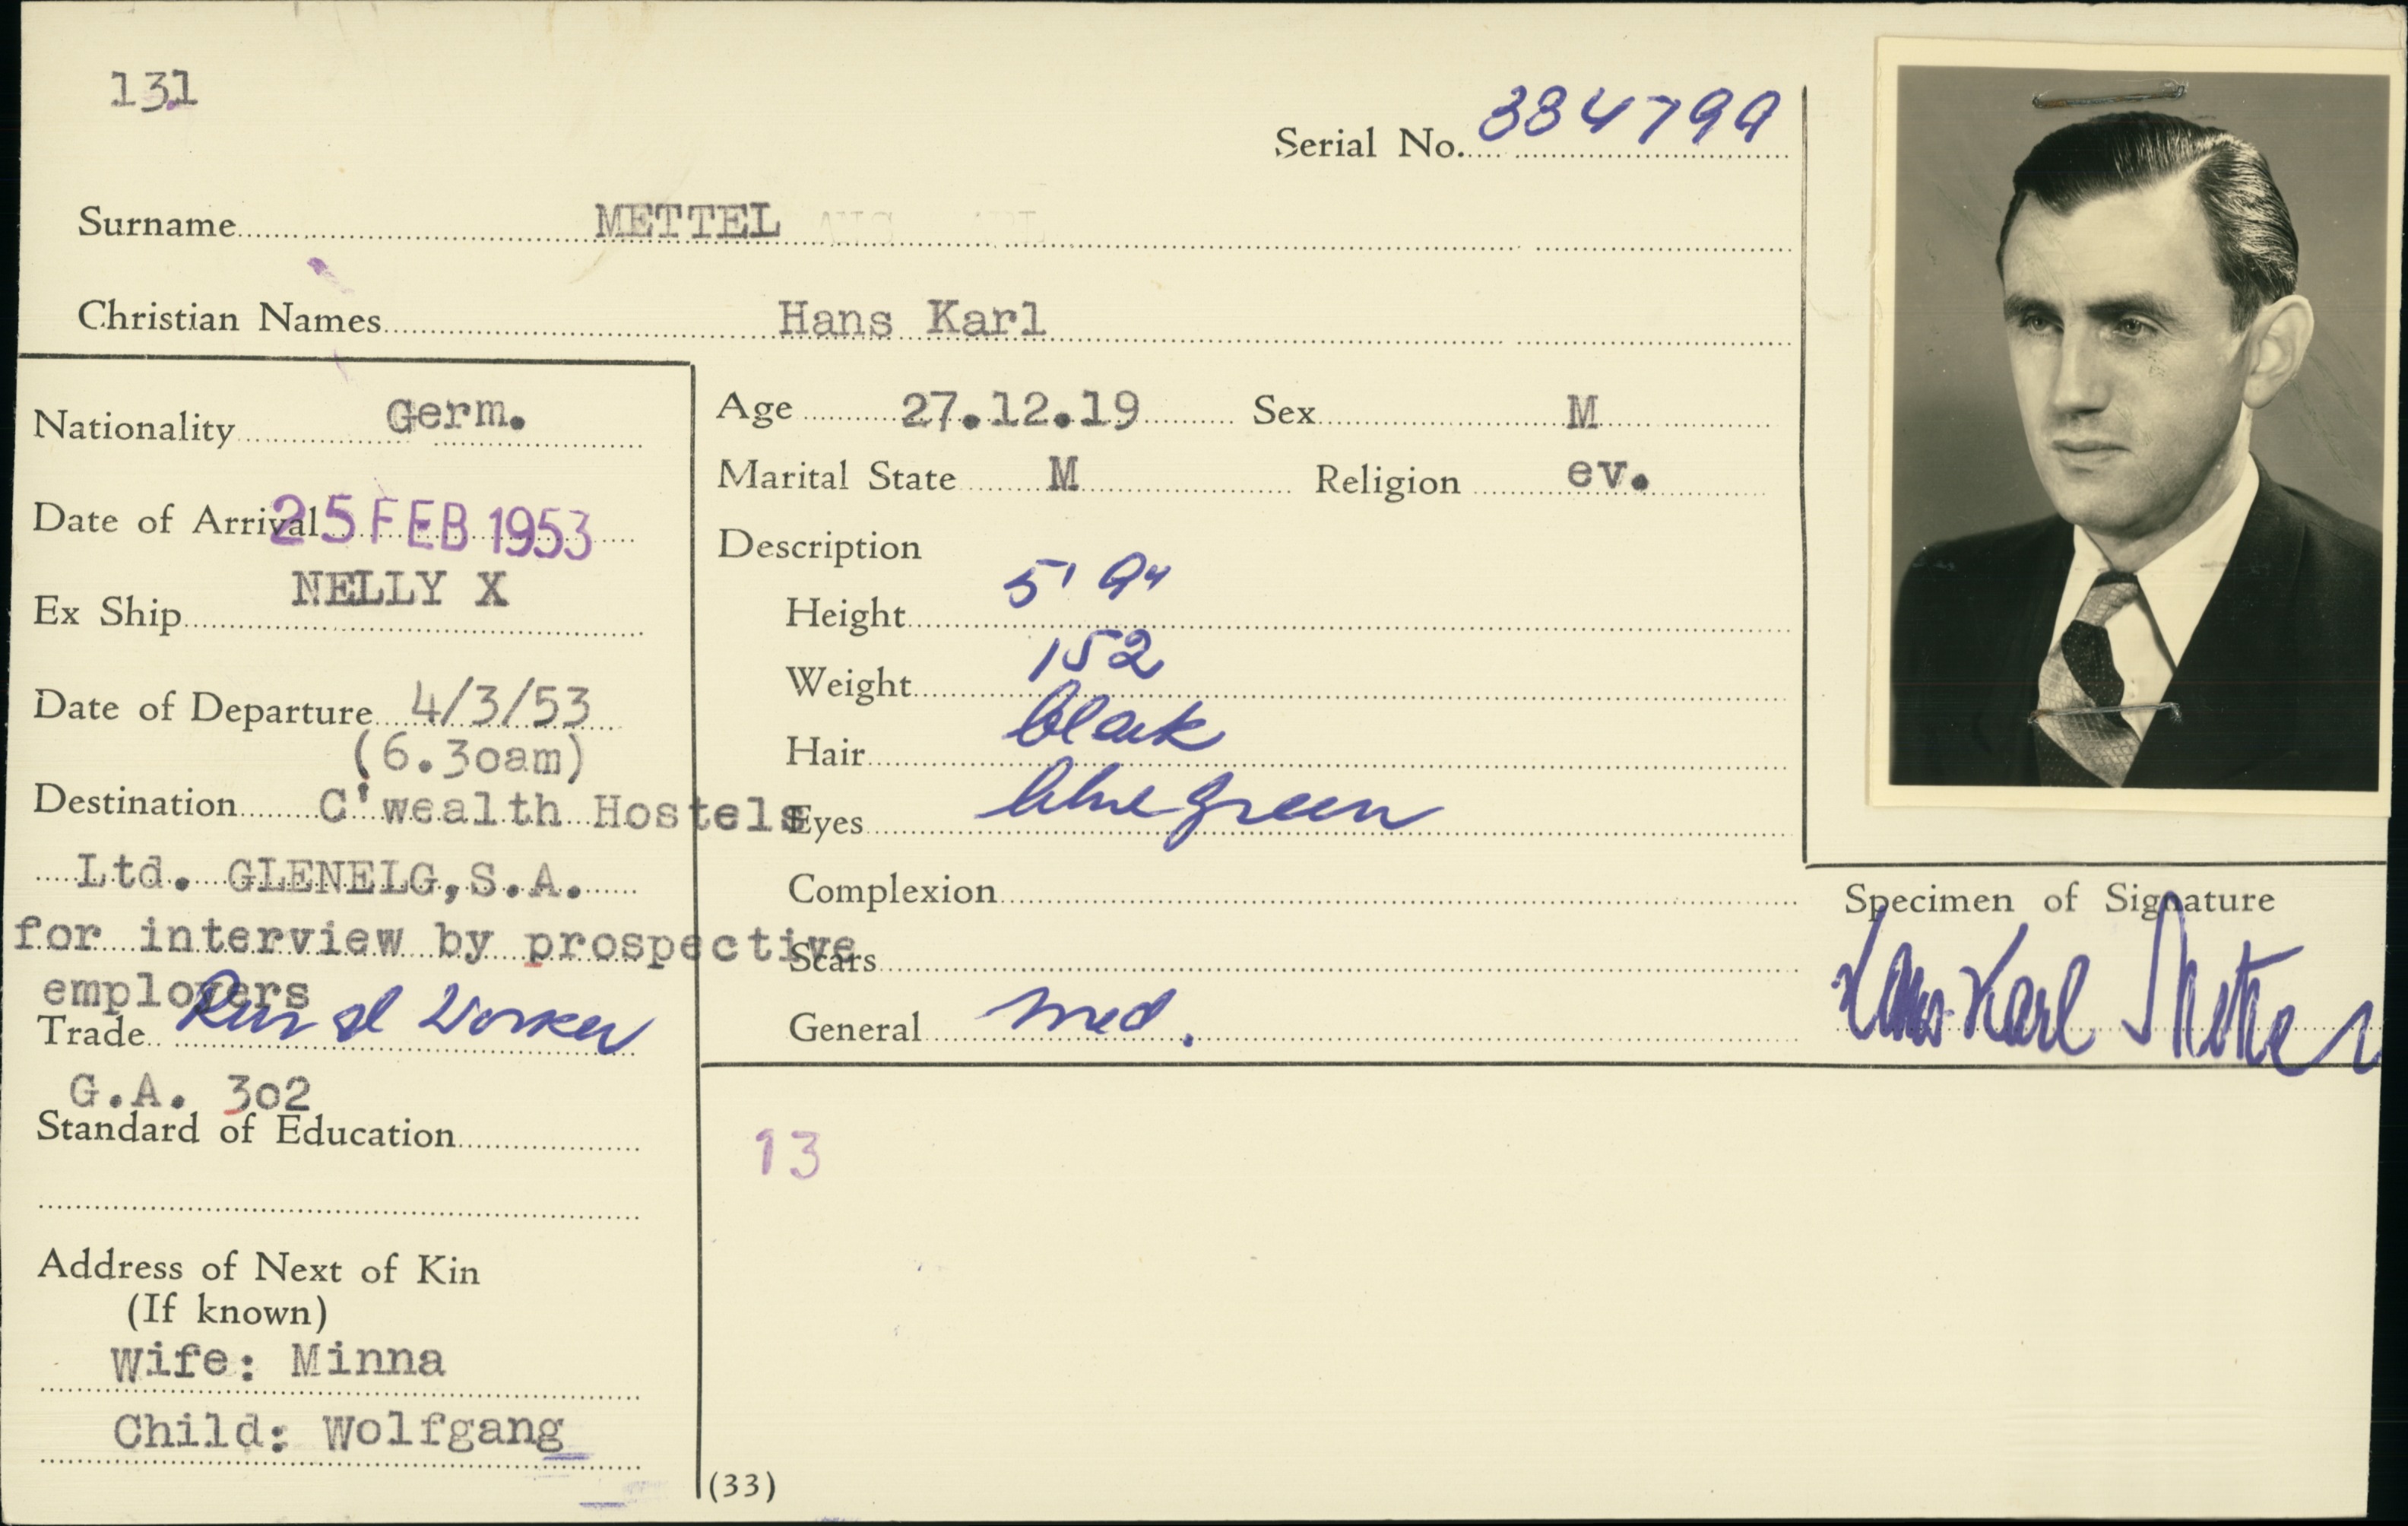 131
Serial No. 334799
Surname METTEL
Christian Names Hans Karl
Nationality Germ.
Date of Arrival 25 FEB 1953
Ex Ship NELLY X
Date of Departure 4/3/53
(6.30am)
Destination C'wealth Hostels
Ltd. GLENELG,S.A.
for interview by prospective
employers
Trade Rural Worker
G.A. 302
Standard of Education
Address of Next of Kin
(If known)
Wife: Minna
Child: Wolfgang
Age 27.12.19 Sex M
Marital State M Religion ev.
Description
Height 5' 9"
Weight 152
Hair black
Eyes blue green
Complexion
Scars
General med.
13
(33)
Specimen of Signature
Hans Karl Mettel